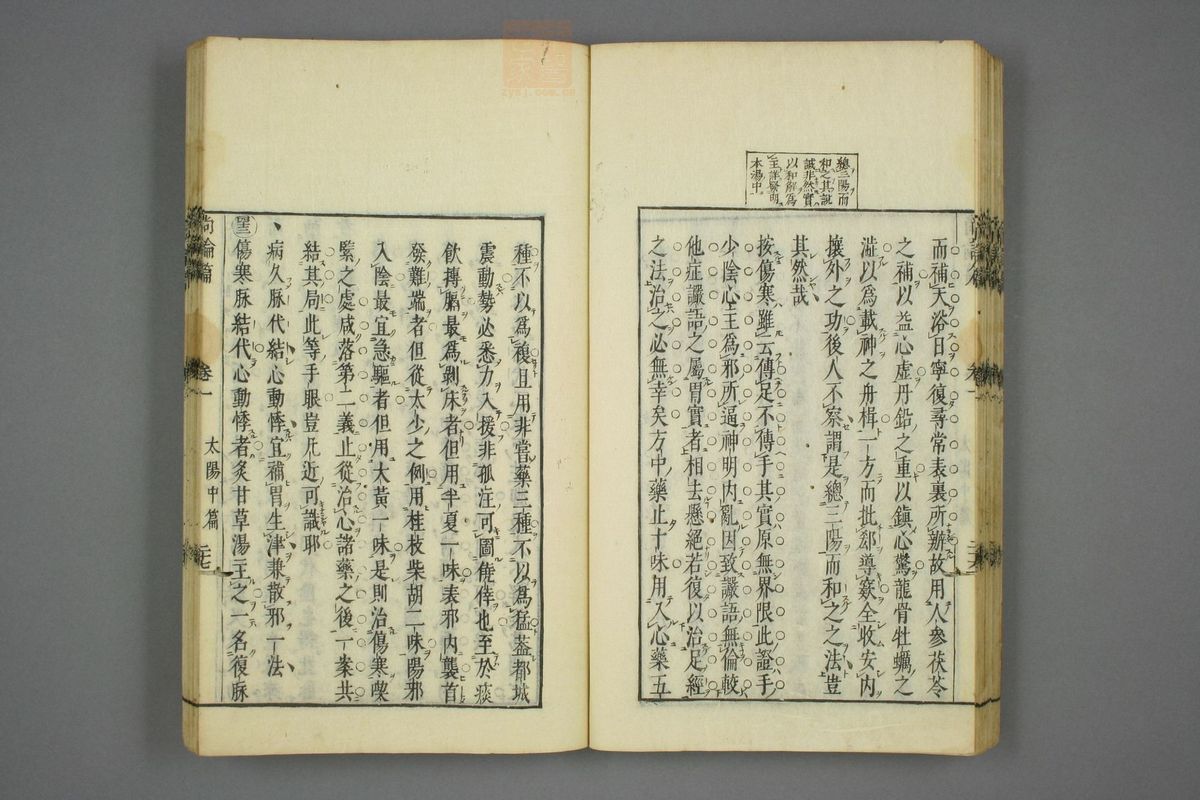 總三陽而
和之其說
誠非然實
以和解爲
主詳發明
本湯中
而補天浴日寧復尋常表裏所辦故用人參茯苓
之補以益心虛丹鉛之重以鎭心驚龍骨牡蠣之
澁以爲載神之舟楫一方而批郄導窾全收安內
攘外之功後人不察謂是總三陽而和之之法豈
其然哉
按傷寒雖云傳足不傳手其實原無界限此證手
少陰心主爲邪所逼神明內亂因致讝語無倫較
他症讝語之屬胃實者相去懸絕若復以治足經
之法治之必無幸矣方中藥止十味用入心藥五
卷一
種不以爲複且用非嘗藥三種不以爲猛葢都城
震動勢必悉力入援非孤注可圖僥倖也至於痰
飮搏膈最爲剝床者但用半夏一味表邪內襲首
發難端者但從太少之例用桂枝柴胡二味陽邪
入陰最宜急驅者但用大黃一味是則治傷寒喫
緊之處咸落第二義止從治心諸藥之後一案共
結其局此等手眼豈凡近可識耶
病久脉代結心動悸宜補胃生津兼散邪一法
傷寒脉結代心動悸者炙甘草湯主之一名復脉
尚論篇
卷一
太陽中篇
zysj.com.cn